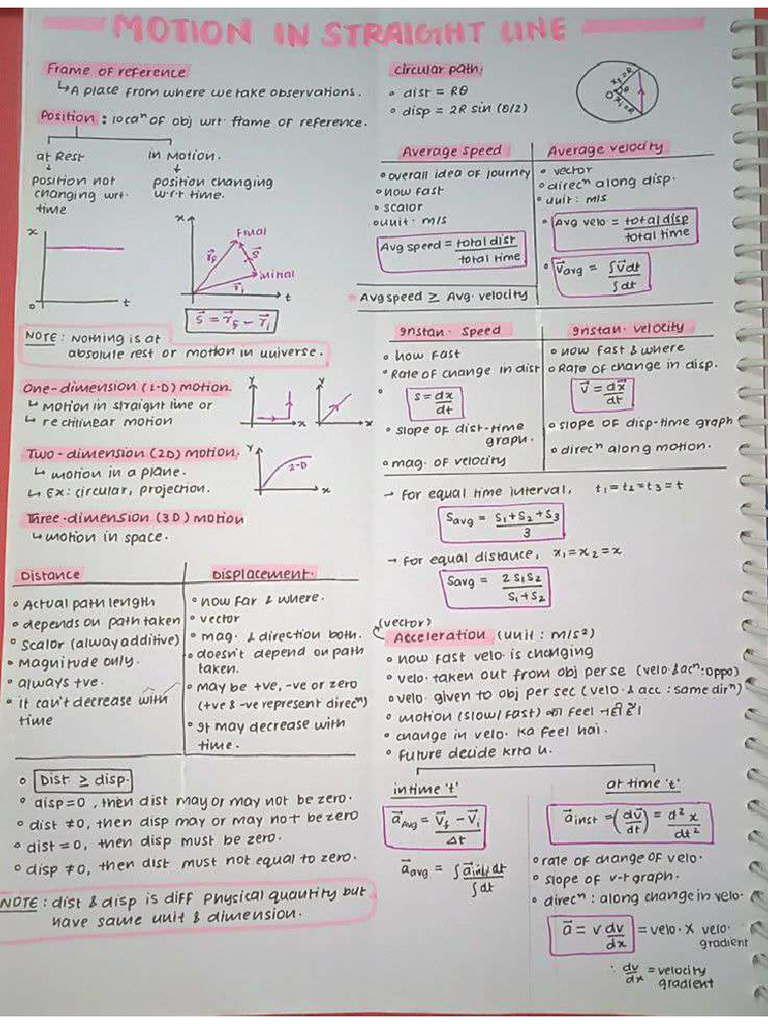 MOTION IN STRAIGHT LINE
Frame of reference
↳ A place from where we take observations.
Position : locaⁿ of obj wrt. frame of reference.
at Rest
↓
position not
changing wrt.
time
in Motion.
↓
position changing
wrt time.
x
t
0
x
Final
Initial
r⃗f
s⃗
r⃗i
t
s⃗ = r⃗f - r⃗i
NOTE : Nothing is at
absolute rest or motion in universe.
One-dimension (1-D) motion.
↳ Motion in straight line or
↳ rectilinear motion
Y
x
Y
x
Two-dimension (2D) motion.
↳ motion in a plane.
↳ Ex: circular, projection.
Y
2-D
x
Three-dimension (3D) motion
↳ motion in space.
Distance
• Actual path length
• depends on path taken
• Scalor (alway additive)
• Magnitude only.
• always +ve.
• it can't decrease with
time
Displacement.
• how far & where.
• vector
• mag. & direction both.
• doesn't depend on path
taken.
• may be +ve, -ve or zero
(+ve & -ve represent direcⁿ)
• It may decrease with
time.
• Dist ≥ disp.
• disp=0, then dist may or may not be zero.
• dist ≠0, then disp may or may not be zero
• dist = 0, then disp must be zero.
• disp ≠0, then dist must not equal to zero.
NOTE : dist & disp is diff physical quantity but
have same unit & dimension.
circular path:
• dist = Rθ
• disp = 2R sin (θ/2)
x₁=R
O
θ
x₁=R
Average speed
• overall idea of journey
• how fast
• scalor
• unit: m/s
Avg speed = total dist / total time
Average velocity
• vector
• direcⁿ along disp.
• unit: m/s
• Avg velo = total disp / total time
• v⃗avg = ∫v⃗dt / ∫dt
• Avg speed ≥ Avg. velocity
Instan. speed
• how fast
• Rate of change in dist
• s = dx/dt
• slope of dist-time
graph.
• mag. of velocity
Instan. velocity
• how fast & where
• Rate of change in disp.
v⃗ = dx⃗/dt
• slope of disp-time graph
• direcⁿ along motion.
→ for equal time interval, t₁=t₂=t₃=t
Savg = S₁+S₂+S₃ / 3
→ for equal distance, x₁=x₂=x
Savg = 2S₁S₂ / S₁+S₂
(vector)
Acceleration (unit : m/s²)
• how fast velo. is changing
• velo. taken out from obj per se (velo. & acⁿ: oppo)
• velo. given to obj per sec (velo. & acc : same dirⁿ)
• motion (slow/fast) का feel नहीं है।
• change in velo. ka feel hai.
• future decide krta h.
in time 't'
a⃗Avg = v⃗f - v⃗i / Δt
a⃗avg = ∫a⃗inst dt / ∫dt
at time 't'
a⃗inst = (dv⃗/dt) = d²x/dt²
• rate of change of velo.
• slope of v-t graph.
• direcⁿ : along change in velo.
a⃗ = v dv/dx = velo. x velo. gradient
∵ dv/dx = velocity gradient